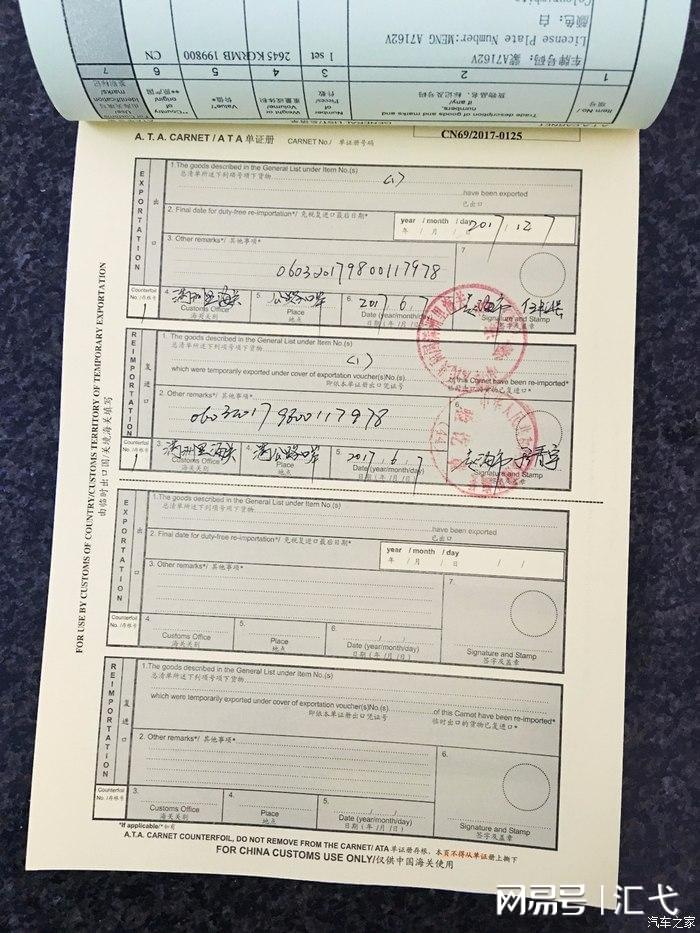 Colour:white
颜色：白
License Plate Number:MENG A7162V
车牌号码：蒙A7162V
1 set
2645 KG
RMB 199800
CN
1
2
3
4
5
6
7
Item No./
项号
Trade description of goods and marks and
if any/
货物品名，标记及号码
Number of
Pieces/
件数
Weight or
Volume/
重量或体积
Value*/
价值*
**Country of
origin/
**原产国
A.T.A. CARNET / ATA 单证册 CARNET No./ 单证册号码 CN69/2017-0125
FOR USE BY CUSTOMS OF COUNTRY/CUSTOMS TERRITORY OF TEMPORARY EXPORTATION
由临时出口国/关境海关填写
EXPORTATION
出口
1.The goods described in the General List under Item No.(s)
总清单所述下列项号项下货物 (1)
have been exported
已出口
2. Final date for duty-free re-importation*/ 免税复进口最后日期*
year / month / day
年 / 月 / 日
2017.12.7
3. Other remarks*/ 其他事项*
060320179800117978
Counterfoil
No. /存根号
1
4. 满洲里海关
Customs Office
海关关别
5. 公路口岸
Place
地点
6. 2017.6.7
Date (year/month/day)
日期 (年 /月 /日)
7.
Signature and Stamp
签字及盖章
REIMPORTATION
复进口
1.The goods described in the General List under Item No.(s)
总清单所述下列项号项下货物 (1)
which were temporarily exported under cover of exportation voucher(s)No.(s)
即依本单证册出口凭证号
of this Carnet have been re-imported*
临时出口的货物已复进口*
2. Other remarks*/ 其他事项*
060320179800117978
Counterfoil
No. /存根号
1
3. 满洲里海关
Customs Office
海关关别
4. 满公路口岸
Place
地点
5. 2017.6.7
Date (year/month/day)
日期 (年 /月 /日)
6.
Signature and Stamp
签字及盖章
EXPORTATION
出口
1.The goods described in the General List under Item No.(s)
总清单所述下列项号项下货物
have been exported
已出口
2. Final date for duty-free re-importation*/ 免税复进口最后日期*
year / month / day
年 / 月 / 日
3. Other remarks*/ 其他事项*
Counterfoil
No. /存根号
4.
Customs Office
海关关别
5.
Place
地点
6.
Date (year/month/day)
日期 (年 /月 /日)
7.
Signature and Stamp
签字及盖章
REIMPORTATION
复进口
1.The goods described in the General List under Item No.(s)
总清单所述下列项号项下货物
which were temporarily exported under cover of exportation voucher(s)No.(s)
即依本单证册出口凭证号
of this Carnet have been re-imported*
临时出口的货物已复进口*
2. Other remarks*/ 其他事项*
Counterfoil
No. /存根号
3.
Customs Office
海关关别
4.
Place
地点
5.
Date (year/month/day)
日期 (年 /月 /日)
6.
Signature and Stamp
签字及盖章
*If applicable/*如有
A.T.A. CARNET COUNTERFOIL, DO NOT REMOVE FROM THE CARNET/ ATA 单证册存根，本页不得从单证册上撕下
FOR CHINA CUSTOMS USE ONLY/仅供中国海关使用
网易号 | 汇弋
汽车之家